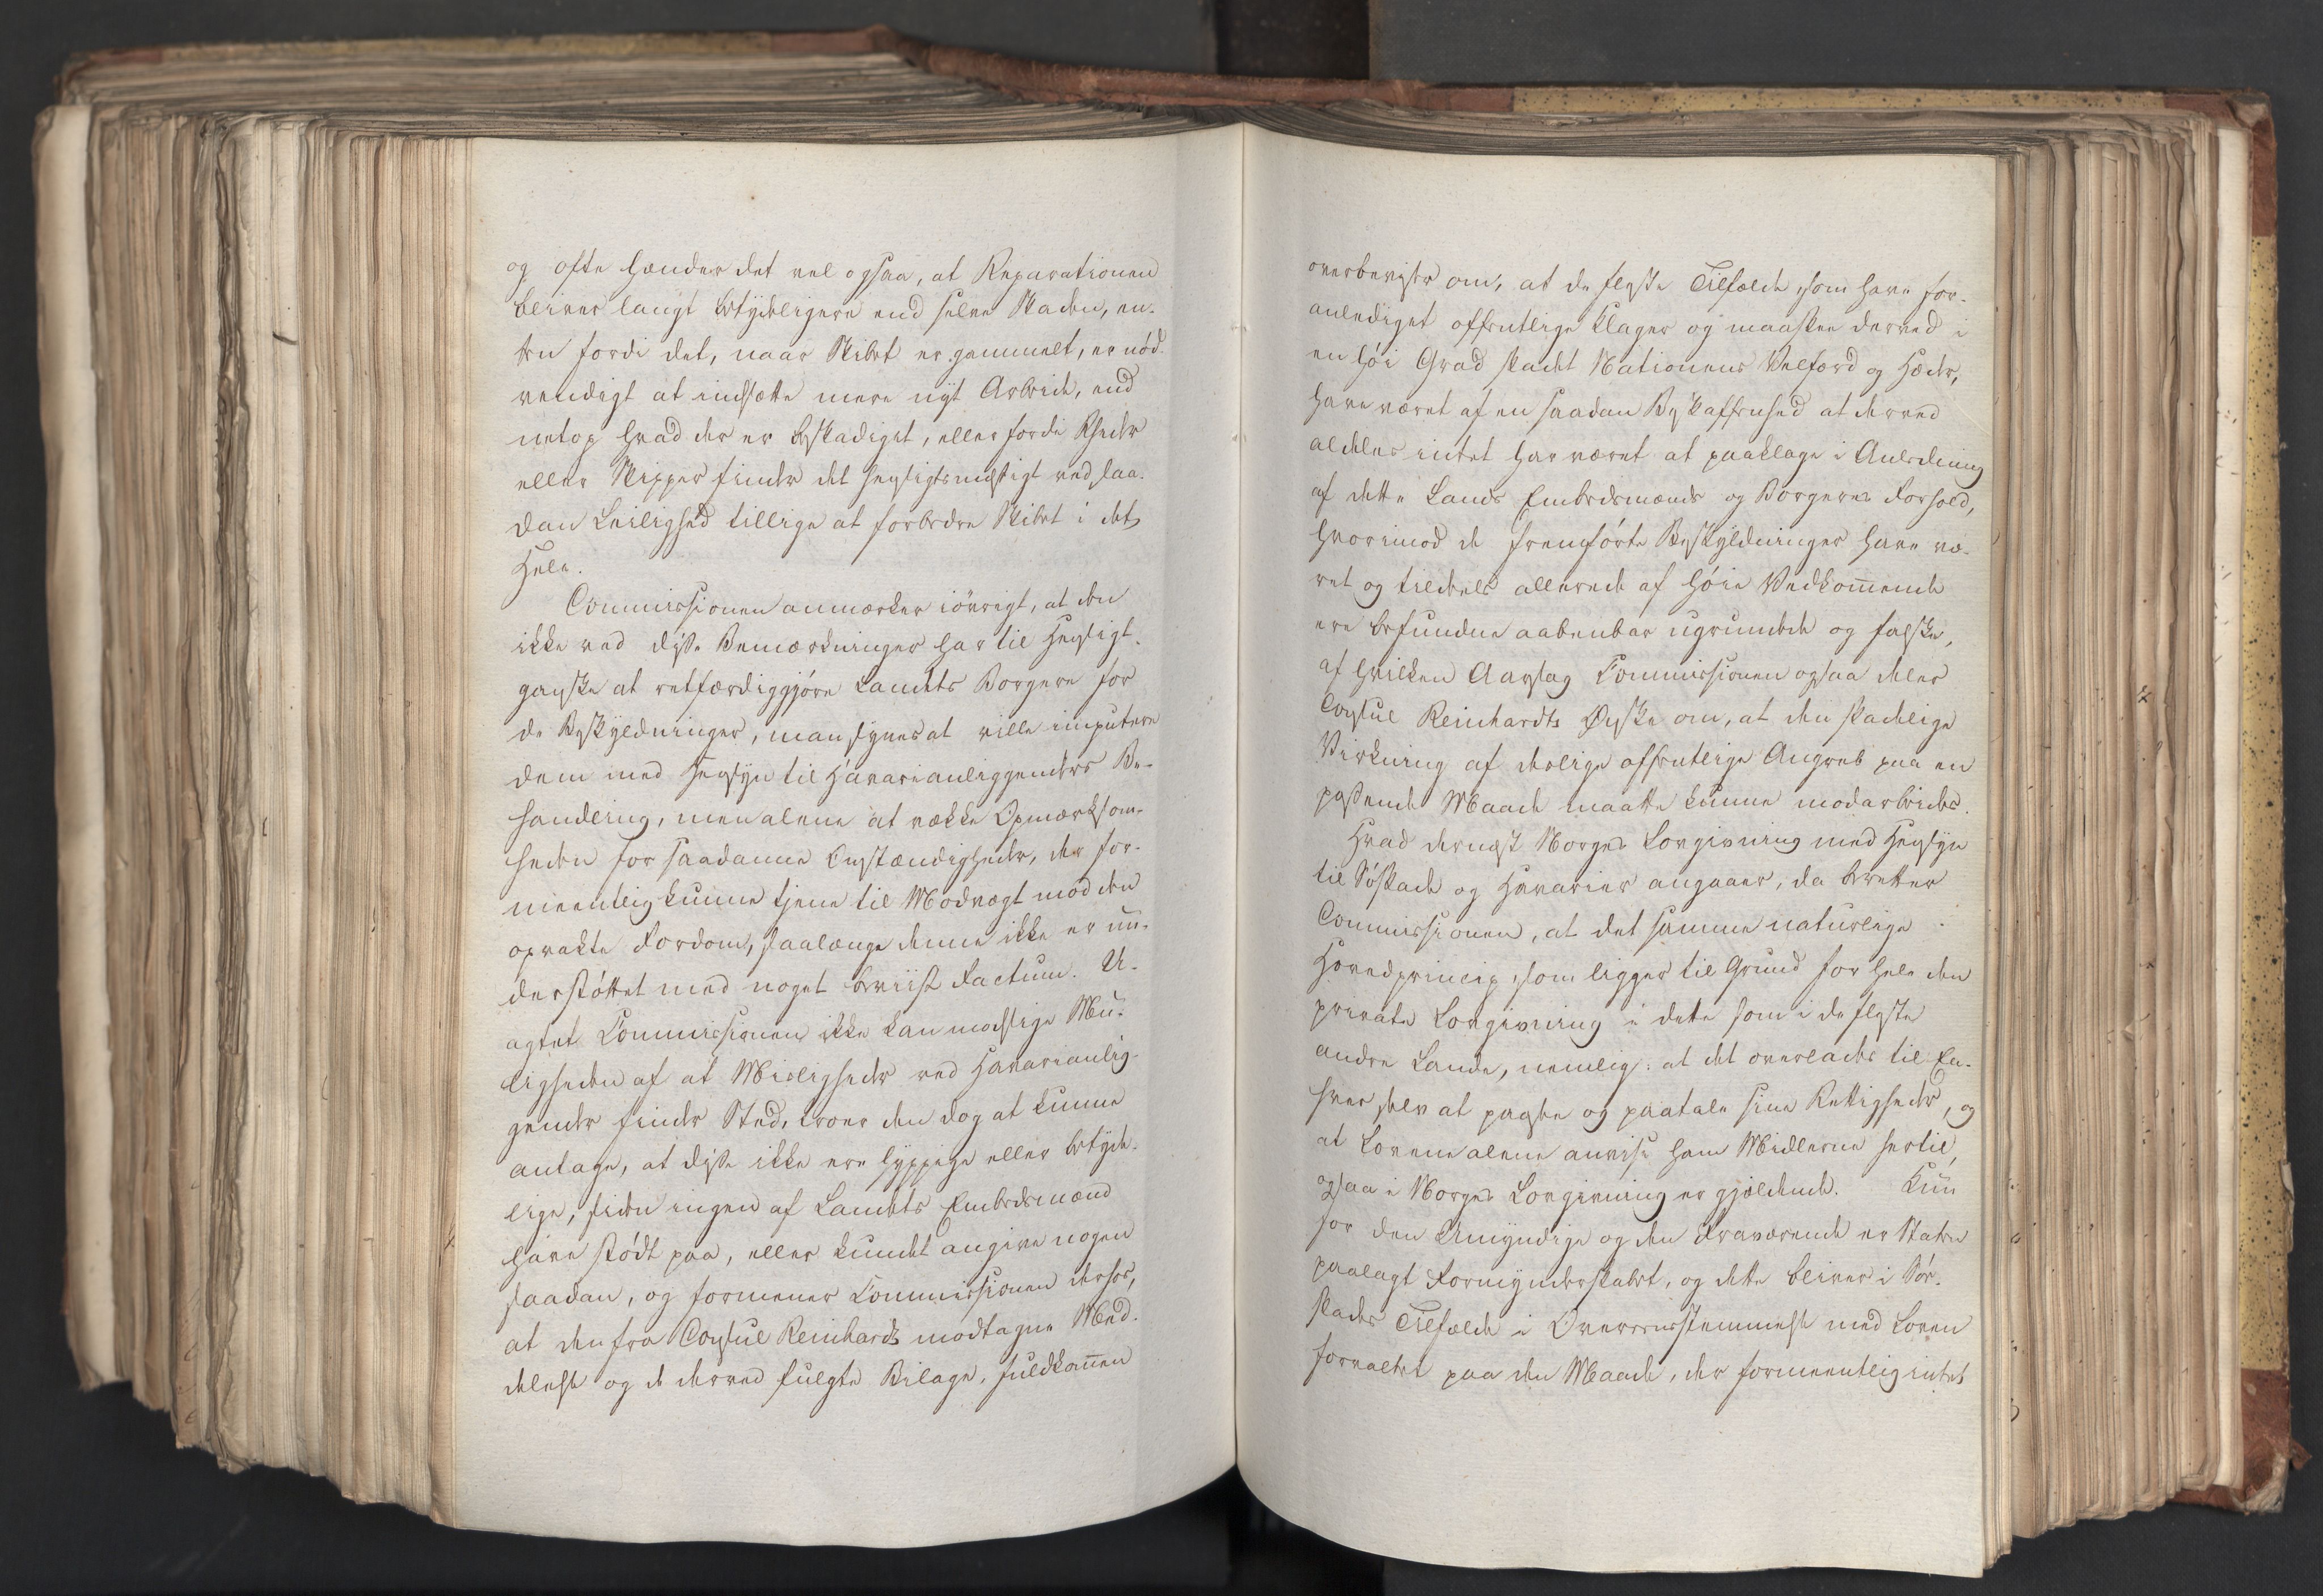 og ofte hænder det vel ogsaa, at Reparationen
bliver langt betydeligere end selve Skaden, en-
ten fordi det, naar Skibet er gammelt, er nød-
vendigt at indsætte mere nyt Arbeide, end
netop hvad der er beskadiget, eller fordi Rheder
eller Skipper finder det hensigtsmæssigt ved saa-
dan Leilighed tillige at forbedre Skibet i det
Hele.
Commissionen anmærker iøvrigt, at den
ikke ved disse Bemærkninger har til Hensigt
ganske at retfærdiggjøre Landets Borgere for
de Beskyldninger, man synes at ville imputere
dem med Hensyn til Havarianliggenders Be-
handling, men alene at vække Opmærksom-
heden for saadanne Omstændigheder, der for-
meentlig kunne tjene til Modvægt mod den
opvakte Fordom, saalænge denne ikke er un-
derstøttet med noget beviist Factum. U-
agtet Commissionen ikke kan modsige Mu-
ligheden af at Misligheder ved Havarianlig-
gender finder Sted, troer den dog at kunne
antage, at disse ikke ere hyppige eller betyde-
lige, siden ingen af Landets Embedsmænd
have stødt paa, eller kundet angive nogen
saadan, og formener Commissionen derhos,
at den fra Consul Reinhardt modtagne Med-
delelse og de derved fulgte Bilage, fuldkommen
overbeviser om, at de fleste Tilfælde, som have for-
anlediget offentlige Klager og maaskee derved i
en høi Grad skadet Nationens Velfærd og Hæder,
have været af en saadan Beskaffenhed at derved
aldeles intet har været at paaklage i Anledning
af dette Lands Embedsmænds og Borgeres Forhold,
hvorimod de fremførte Beskyldninger have væ-
ret og tildeels allerede af høie Vedkommende
ere befundne aabenbar ugrundede og falske,
af hvilken Aarsag Commissionen ogsaa deler
Consul Reinhardts Ønske om, at den skadelige
Virkning af deslige offentlige Angreb paa en
passende Maade maatte kunne modarbeides.
Hvad dernæst Norges Lovgivning med Hensyn
til Søskade og Havarier angaaer, da beretter
Commissionen, at det samme naturlige
Hovedprincip, som ligger til Grund for hele den
private Lovgivning i dette som i de fleste
andre Lande, nemlig: at det overlades til En-
hver selv at passe og paatale sine Rettigheder, og
at Lovene alene anvise ham Midlerne hertil,
ogsaa i Norges Lovgivning er gjældende. Kun
for den Umyndige og den Fraværende er Staten
paalagt Formynderskabet, og dette bliver i Sø-
skades Tilfælde i Overeensstemmelse med Loven
forvaltet paa den Maade, der formeentlig intet